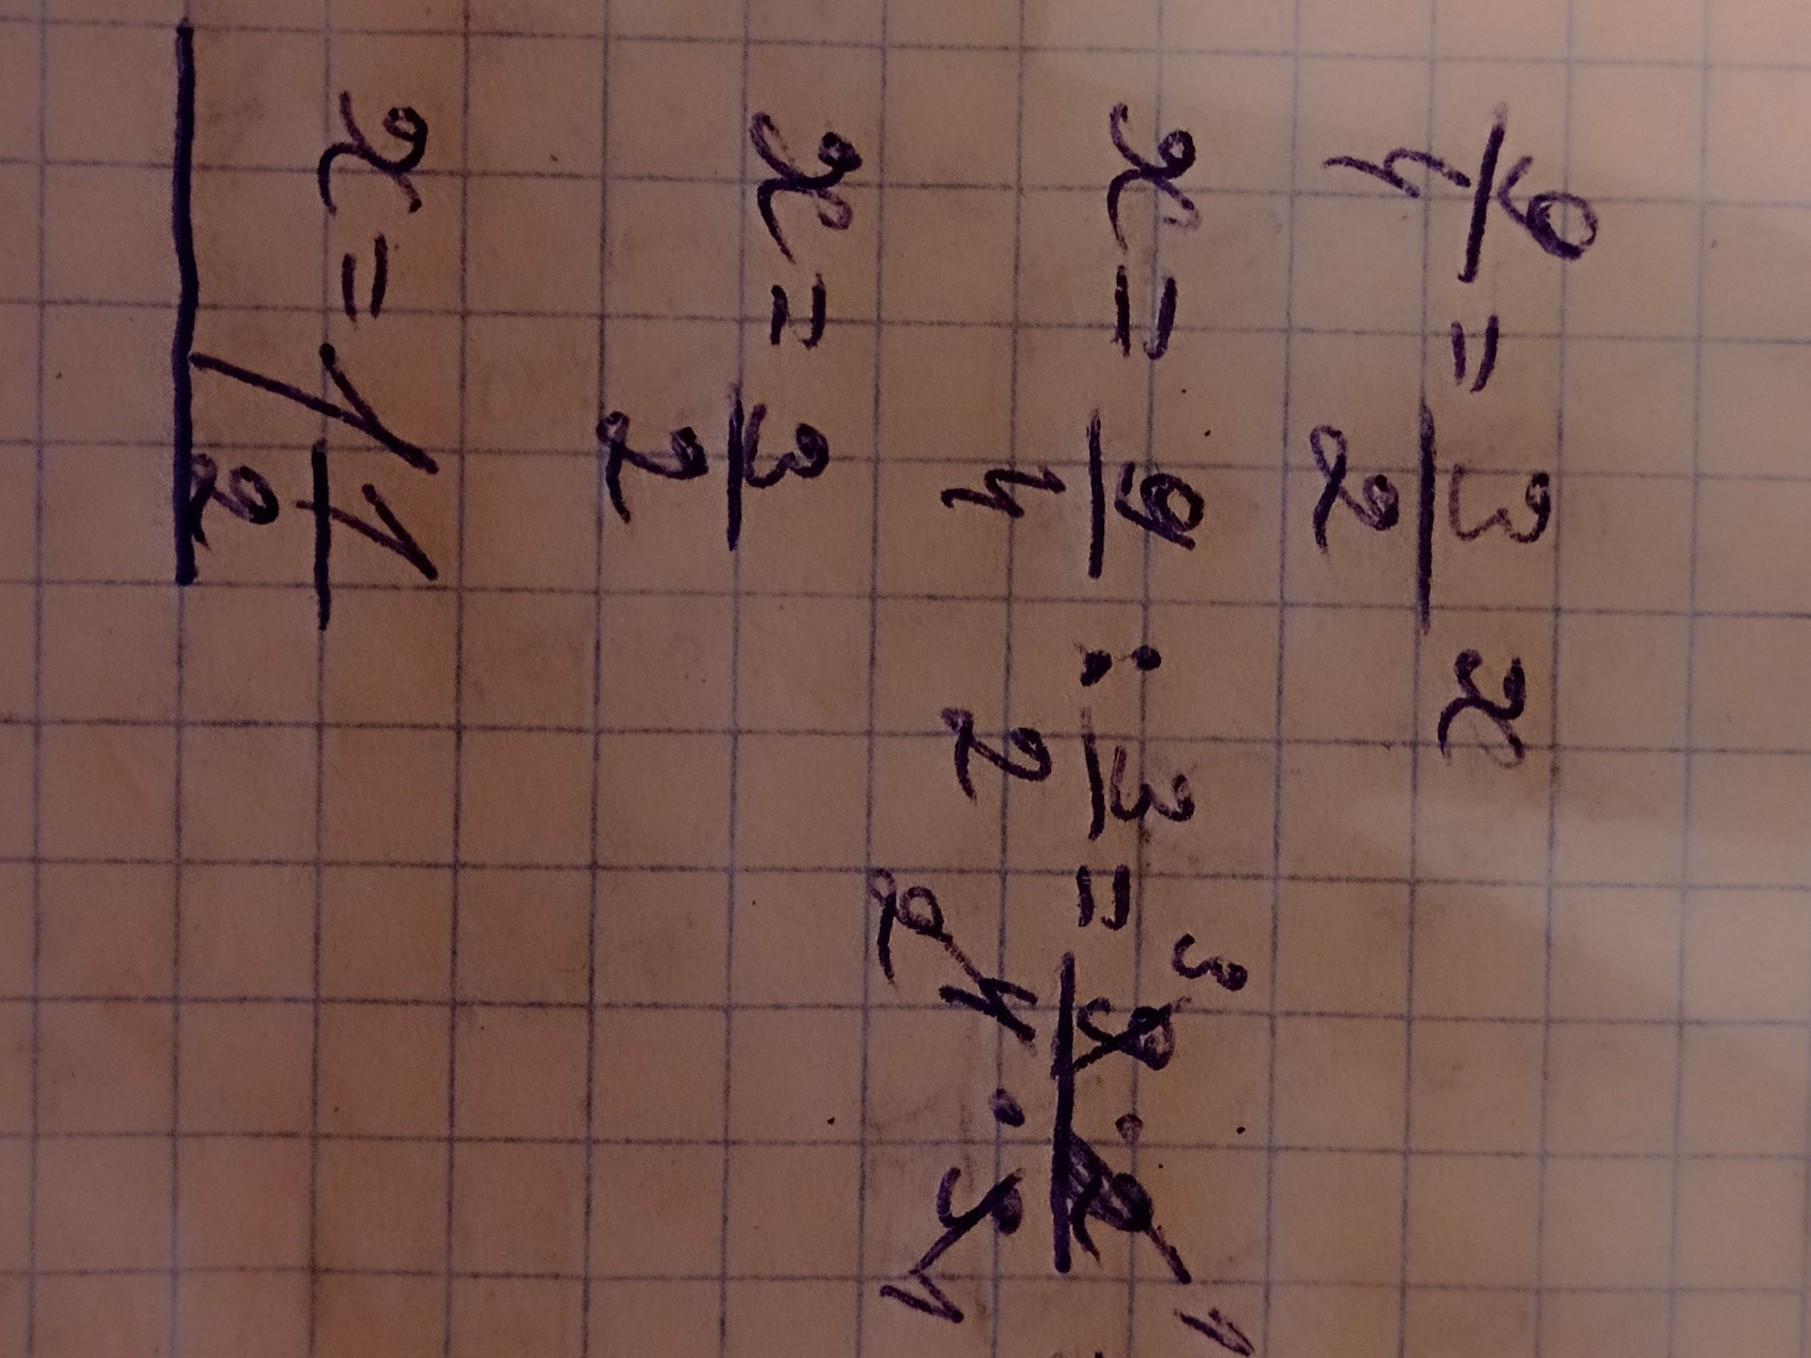 9/4 = 3/2 x
x = 9/4 : 3/2 = 9 · 2 / 4 · 3 3 1 2 1
x = 3/2
x = 1 1/2